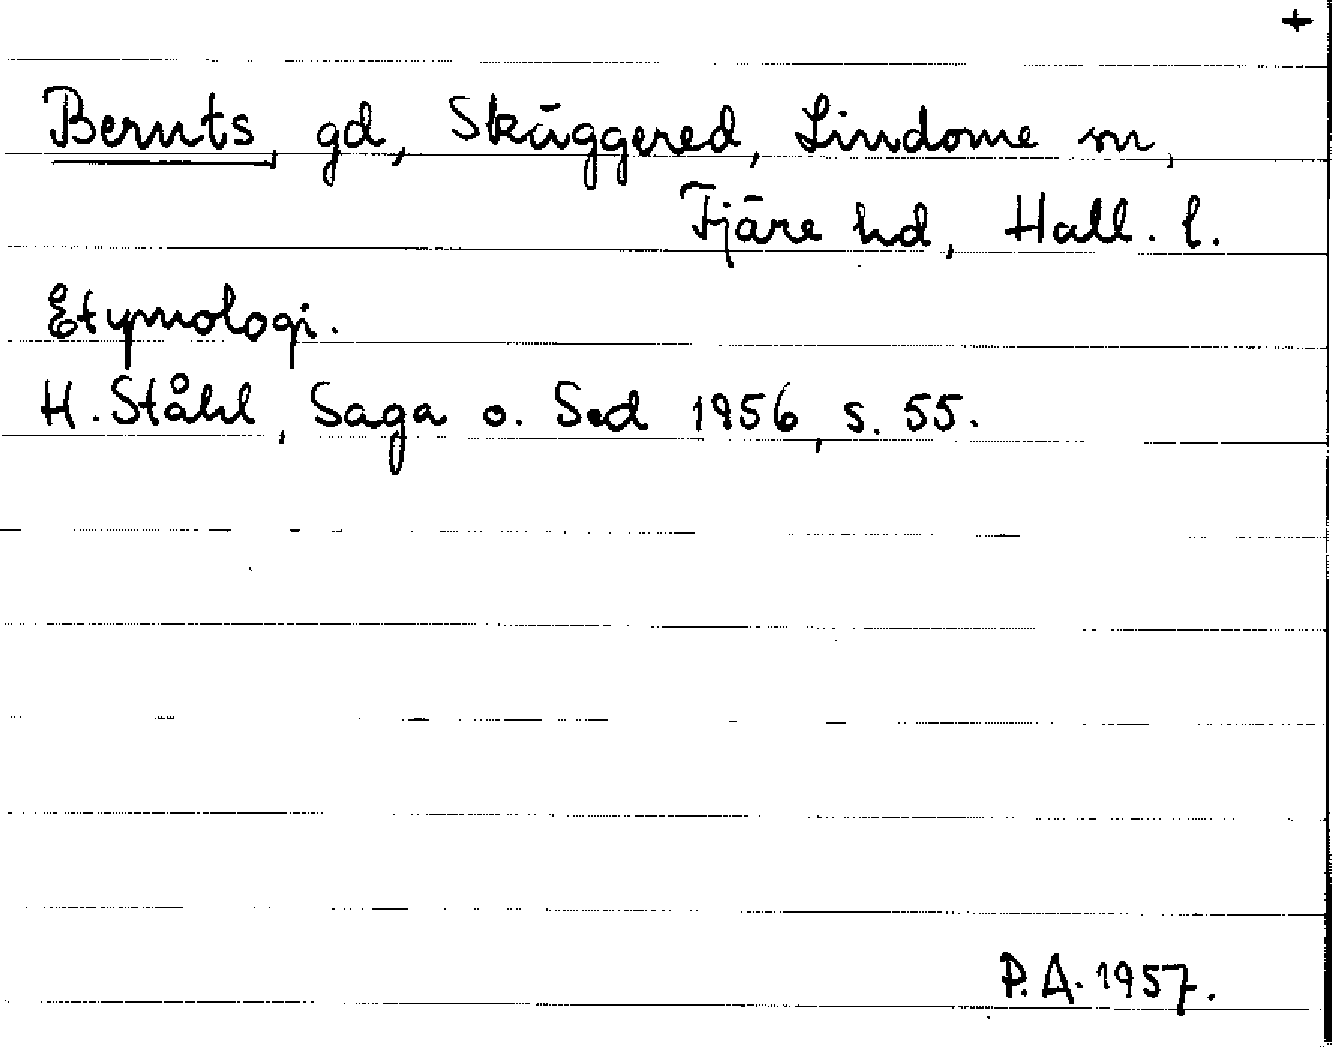 +
Bernts, gd, Skäggered, Lindome sn,
Fjäre hd, Hall. l.
Etymologi.
H. Ståhl, Saga o. Sed 1956, s. 55.
P. A. 1957.